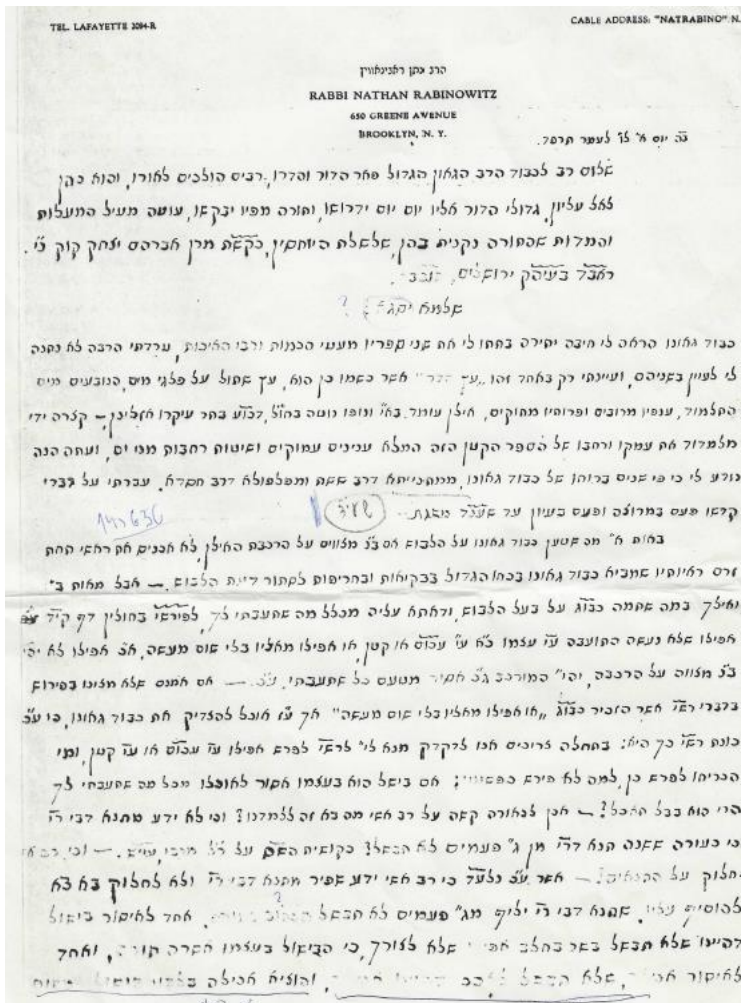 TEL. LAFAYETTE 2094-R
CABLE ADDRESS: "NATRABINO" N.
הרב נתן ראבינאוויץ
RABBI NATHAN RABINOWITZ
650 GREENE AVENUE
BROOKLYN, N. Y.
בה יום א' לו' לעמר תרפד.
שלום רב לכבוד הרב הגאון הגדול פאר הדור והדרו, רבים הולכים לאורו, והוא כהן
לאל עליון, גדולי הדור אליו יום יום ידרושו, ותורה מפיו יבקשו, עוטה מעיל המעלות
והמדות שהתורה נקנית בהן, שלשלת היוחסין, כקשת מרן אברהם יצחק קוק
ראבד בעיהק ירושלים,
שלמא
כבוד גאונו הראה לי חיבה יתירה בתתו לי את שני ספריו מעטי הכמות ורבי האיכות, טרדתי הרבה לא נתנה
לי לעיין בשניהם, ועיינתי רק באחד זהו "עץ הדר" אשר כשמו כן הוא, עץ שתול על פלגי מים, הנובעים מים
התלמוד, ענפיו מרובים ופרותיו מתוקים, אילן עומד ונופו נוטה בתר עיקרו אזלינן – קצרה ידי
מלמדוד את עמקו ורחבו של הספר הקטן הזה המלא ענינים עמוקים ושיטות רחבות מני ים, ועתה הנה
נודע לי כי פי שנים ברוחו של כבוד גאונו, ממתנייתא דרב ששת ומפלפולא דרב חסדא. עברתי על דברי
קדשו פעם במרוצה ופעם בעיון עד
באות א' מה שטען כבוד גאונו על הלבוש אם ב"נ מצווים על הרכבת האילן, לא אכניס את ראשי תחת
ראיותיו שמביא כבוד גאונו בכחו הגדול בבקיאות ובחריפות לסתור דעת הלבוש. – אבל מאות ב'
ואילך במה שתמה על בעל הלבוש, ודאתא עליה מכלל מה שתעבתי לך, בחולין דף קיד
אפילו שלא נעשה התועבה עי עצמו או קטן, או אפילו מאליו בלי שום מעשה, אפילו לא יהי'
ב"נ מצווה על הרכבה, יהי' המורכב ג"כ אסור מטעם כל שתעבתי, – אם אמנם שלא מצינו בפירוש
בדברי אשר הזכיר "או אפילו מאליו בלי שום מעשה" אך אוכל להצדיק את כבוד גאונו, כי
כונת כך היא: בתחלה צריכים אנו לדקדק מנא לי' לפרש אפילו או עי קטן, ומי
הכריחו לפרש כן, למה לא פירש אם בישל הוא בעצמו אסור לאוכלו מכל מה שתעבתי לך
הרי הוא בבל תאכל? – אכן לכאורה קשה על רב אשי מה בא זה ללמדנו? וכי לא ידע מתנא דבי
פעמים לא תבשל? – וכי רב אשי
חלוק על התנאים? – אשר כי רב אשי ידע שפיר מתנא דבי ולא לחלוק בא
להוסיף עליו, שתנא דבי יליף מג' פעמים לא תבשל אחד לאיסור בישול
דהיינו שלא תבשל בשר בחלב שלא לצורך, כי הבישול בעצמו אסרה תורה, ואחד
לאיסור שלא והוציא אכילה בלשון בישול